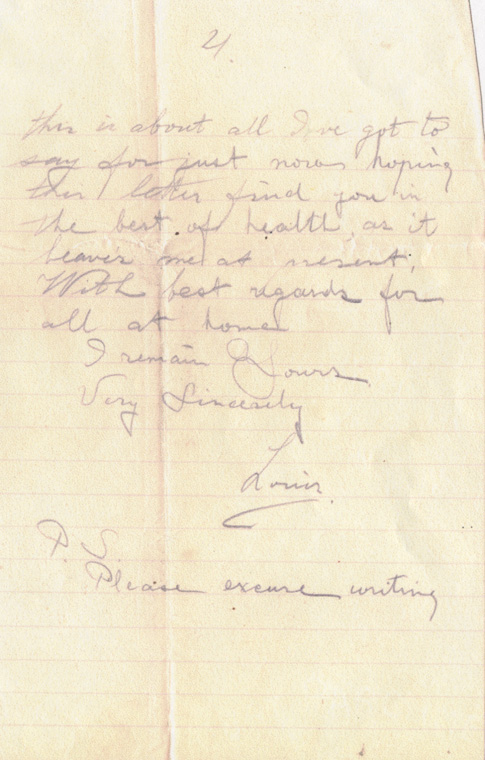 4.
this is about all I've got to
say for just now hoping
this letter find you in
the best of health as it
leaves me at present.
With best regards for
all at home
I remain Yours
Very Sincerely
Louis
P.S.
Please excuse writing